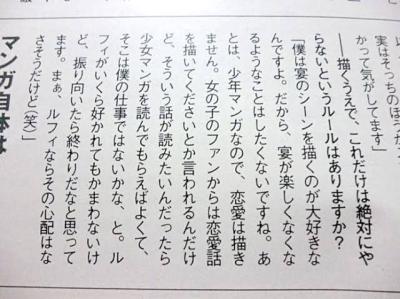 実はそっちのほうが
かって気がしてます」
――描くうえで、これだけは絶対にや
らないというルールはありますか？
「僕は宴のシーンを描くのが大好きな
んですよ。だから、宴が楽しくなくな
るようなことはしたくないですね。あ
とは、少年マンガなので、恋愛は描き
ません。女の子のファンからは恋愛話
を描いてくださいとか言われるんだけ
ど、そういう話が読みたいんだったら
少女マンガを読んでもらえばよくて、
そこは僕の仕事ではないかな、と。ル
フィがいくら好かれてもかまわないけ
ど、振り向いたら終わりだなと思って
ます。まぁ、ルフィならその心配はな
さそうだけど（笑）」
マンガ自体は